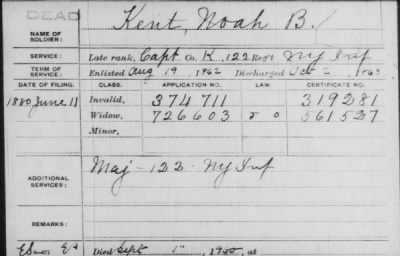 DEAD
NAME OF SOLDIER: Kent, Noah B.
SERVICE: Late rank, Capt Co. K, 122 Reg't Ny Inf
TERM OF SERVICE: Enlisted Aug 19, 1862 Discharged Oct 2, 186
DATE OF FILING. CLASS. APPLICATION NO. LAW. CERTIFICATE NO.
1880 June 11 Invalid, 374 711 319281
Widow, 726603 561527
Minor,
ADDITIONAL SERVICES: Maj - 122 - Ny Inf
REMARKS:
Died Sept 1", 1900, at